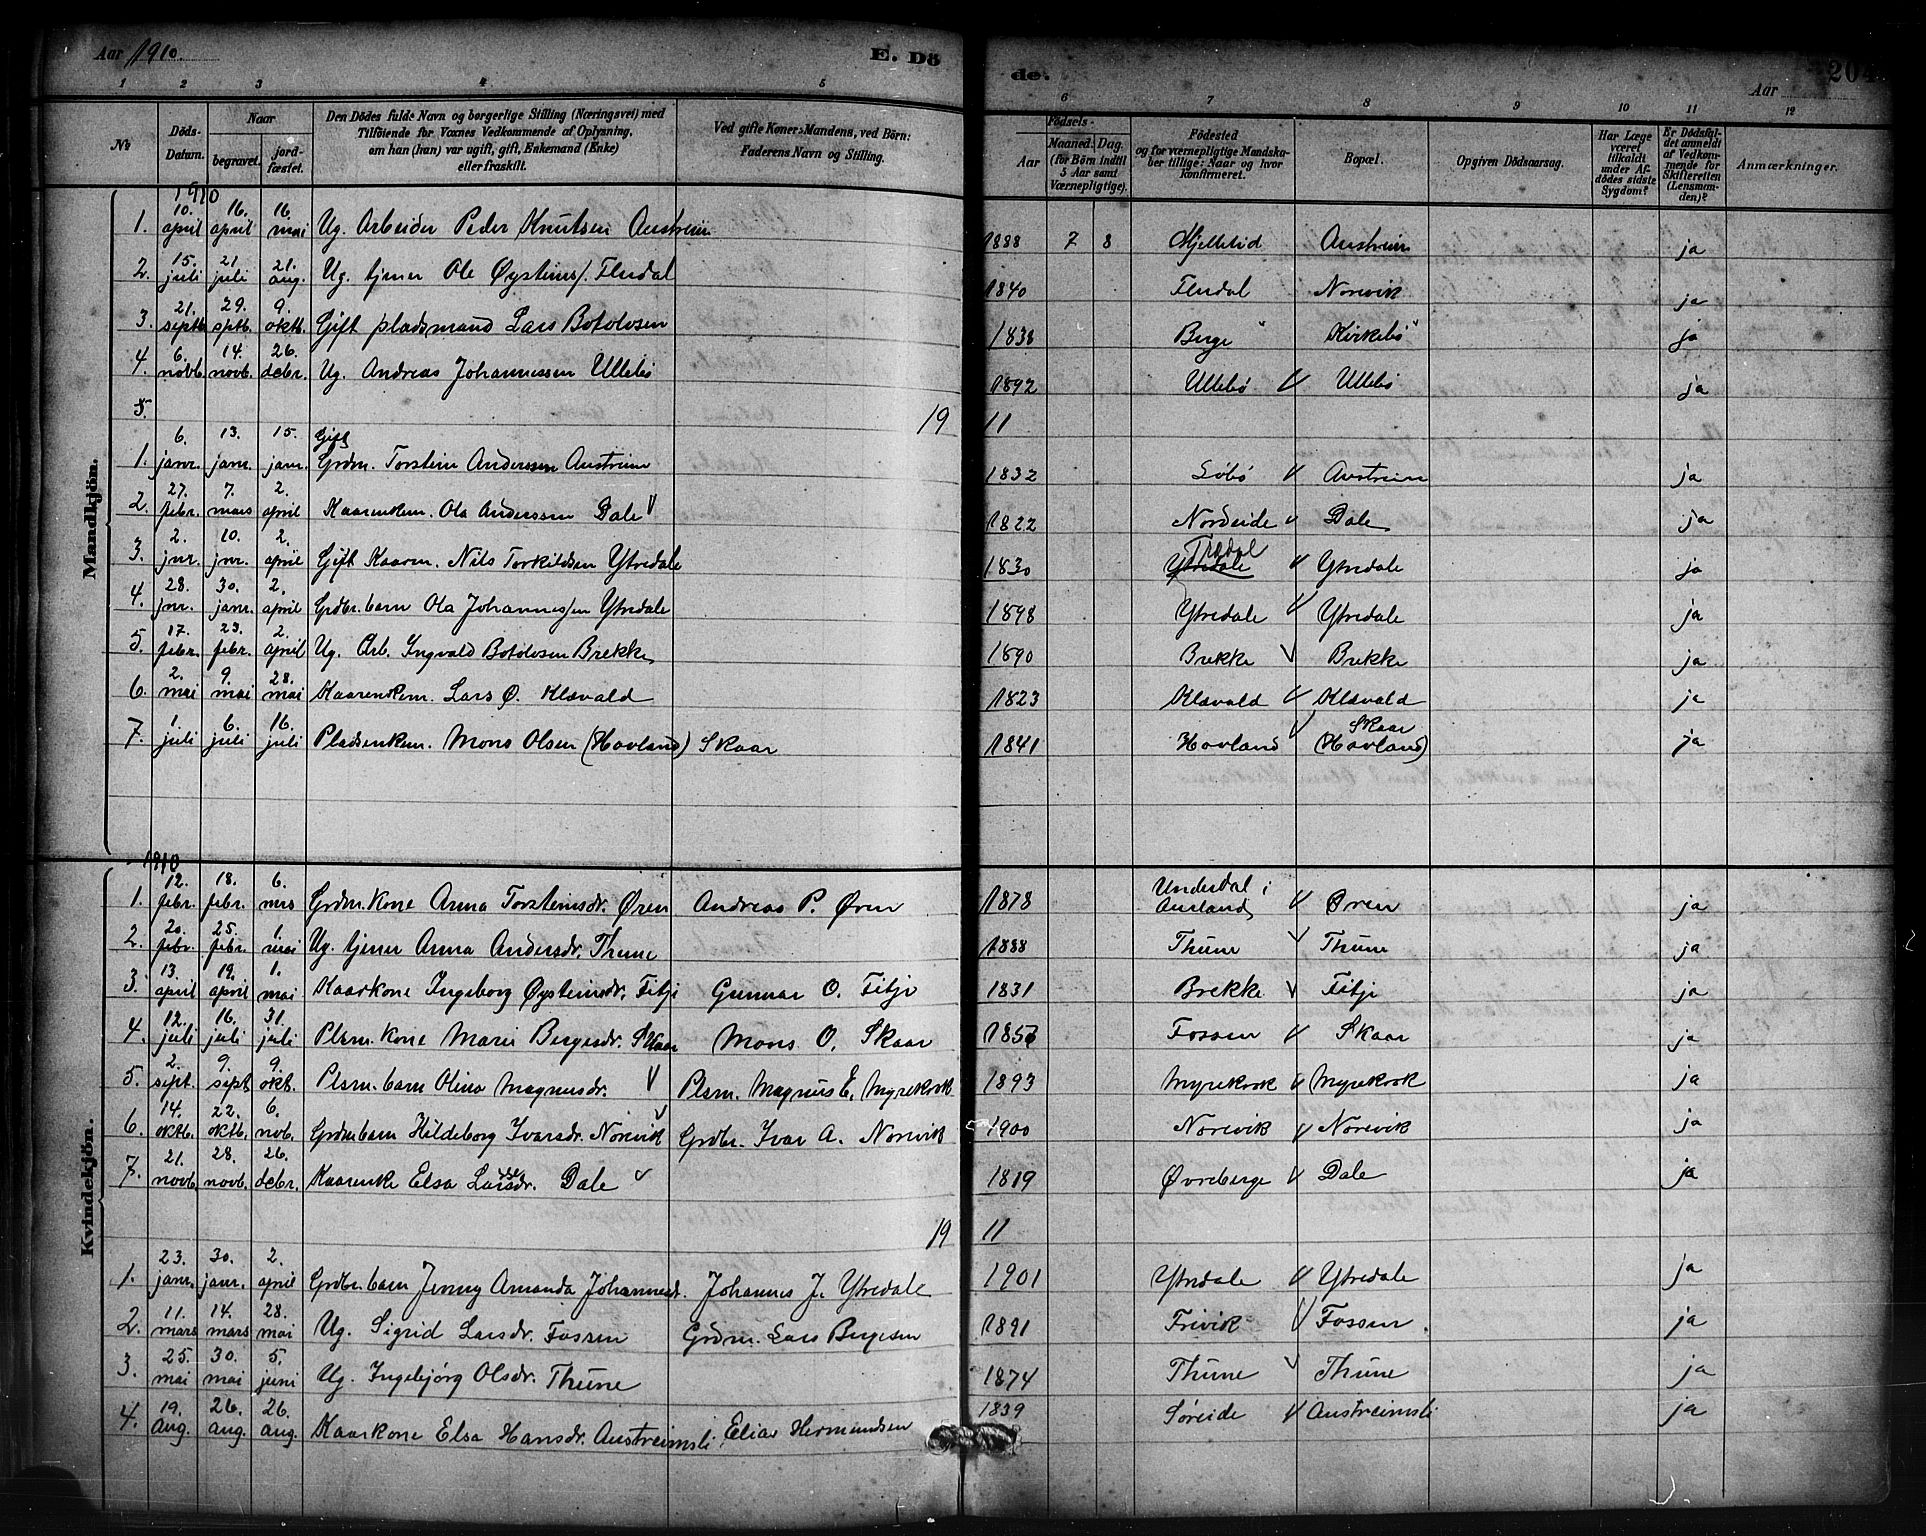 Aar 1910. E. Dö de. Aar 204
1 2 3 4 5 6 7 8 9 10 11 12
№ Döds-Datum. Naar begravet. jord-fæstet. Den Dödes fulde Navn og borgerlige Stilling (Næringsvei) med Tilföiende for Voxnes Vedkommende af Oplysning, om han (hun) var ugift, gift, Enkemand (Enke) eller fraskilt. Ved gifte Koner: Mandens, ved Börn: Faderens Navn og Stilling. Födsels- Aar Maaned. Dag. (for Börn indtil 5 Aar samt Værnepligtige). Födested og for værnepligtige Mandska-ber tillige: Naar og hvor konfirmeret. Bopæl. Opgiven Dödsaarsag. Har Læge været tilkaldt under Af-dödes sidste Sygdom? Er Dödsfal-det anmeldt af Vedkom-mende for Skifteretten (Lensman-den)? Anmærkninger.
Mandkjön.
1910
1. 10. april 16. april 16. mai Ug. Arbeider Peder Knutsen Austreim 1888 7 8 Mjellelid Austreim ja
2. 15. juli 21 juli 21. aug. Ug. tjener Ole Øysteins/. Fludal 1840 Fludal Norevik ja
3. 21. septb. 29. sptb. 9. oktb. Gift pladsmand Lars Botolvsen 1838 Berge Kirkebö ja
4. 6. novb. 14. novb. 26. debr. Ug. Andreas Johannessen Ullebö 1892 Ullebö V Ullebö ja
5. 19 11
1. 6. janr. 13. janr. 15. janr. Gift Grdm. Torstein Anderssen Austreim 1832 Söbö V Austreim ja
2. 27. febr. 7. mars 2. april Kaarenkem. Ola Anderssen Dale V 1822 Nordeide V Dale ja
3. 2. jnr. 10. jnr. 2. april Gift Kaarm. Nils Torkildsen Ytredale 1830 Tredal Ytredale V Ytredale ja
4. 28. jnr. 30. janr. 2. april Grdbr. barn Ola Johannes/en Ytredale 1898 Ytredale V Ytredale ja
5. 17. febr. 23. febr. 2. april Ug. Arb. Ingvald Botolvsen Brekke 1890 Brekke V Brekke ja
6. 2. mai 9. mai 28. mai Kaarenkem. Lars Ø. Klævald 1823 Klævald V Klævald ja
7. 1. juli 6. juli 16. juli Pladsenkem. Mons Olsen (Hovland) Skaar 1841 Hovland V Skaar (Hovland) ja
Kvindekjön.
1910
1. 12. febr. 18. febr. 6. mrs Grdm. kone Anna Torsteinsdr. Øren Andreas P. Øren 1878 Underdal i Aurland V Øren ja
2. 20. febr. 25. febr. 1. mai Ug. tjener Anna Andersdr. Thune 1888 Thune V Thune ja
3. 13. april 19. april 1. mai Kaarkone Ingeborg Øysteinsdr. Fitje Gunnar O. Fitje 1831 Brekke V Fitje ja
4. 12. juli 16. juli 31. juli Plsm. kone Marie Bergesdr. Skaar Mons O. Skaar Fossen V Skaar ja
5. 2. sept. 9. sept 9. okt. Plsm. barn Olina Magnusdr. V Plsm. Magnus E. Myrekrok 1893 Myrekrok V Myrekrok ja
6. 14. oktb. 22. oktb. 6. nob. Grdm. barn Hildeborg Ivarsdr. Norevik Grdbr. Ivar A. Norevik 1900 Norevik V Norevik ja
7. 21. novb. 28. novb. 26. debr. Kaarenke Elsa Larsdr. Dale V 1819 Øvreberge V Dale ja
19 11
1. 23. janr. 30. janr. 2. april Grdbr. barn Jenny Amanda Johannesd. Johannes J. Ytredale 1901 Ytredale V Ytredale ja
2. 11. mars 14. mars 28. mai Ug. Sigrid Larsdr. Fossen Grdm. Lars Bergesen 1891 Frivik V Fossen. ja
3. 25. mai 30. mai 5. juni Ug. Ingebjörg Olsdr. Thune 1874 Thune V Thune ja
4. 19. aug. 26. aug. 26. aug. Kaarkone Elsa Hansdr. Austreimsli. Elias Hermundsen 1839 Söreide V Austreimsli ja